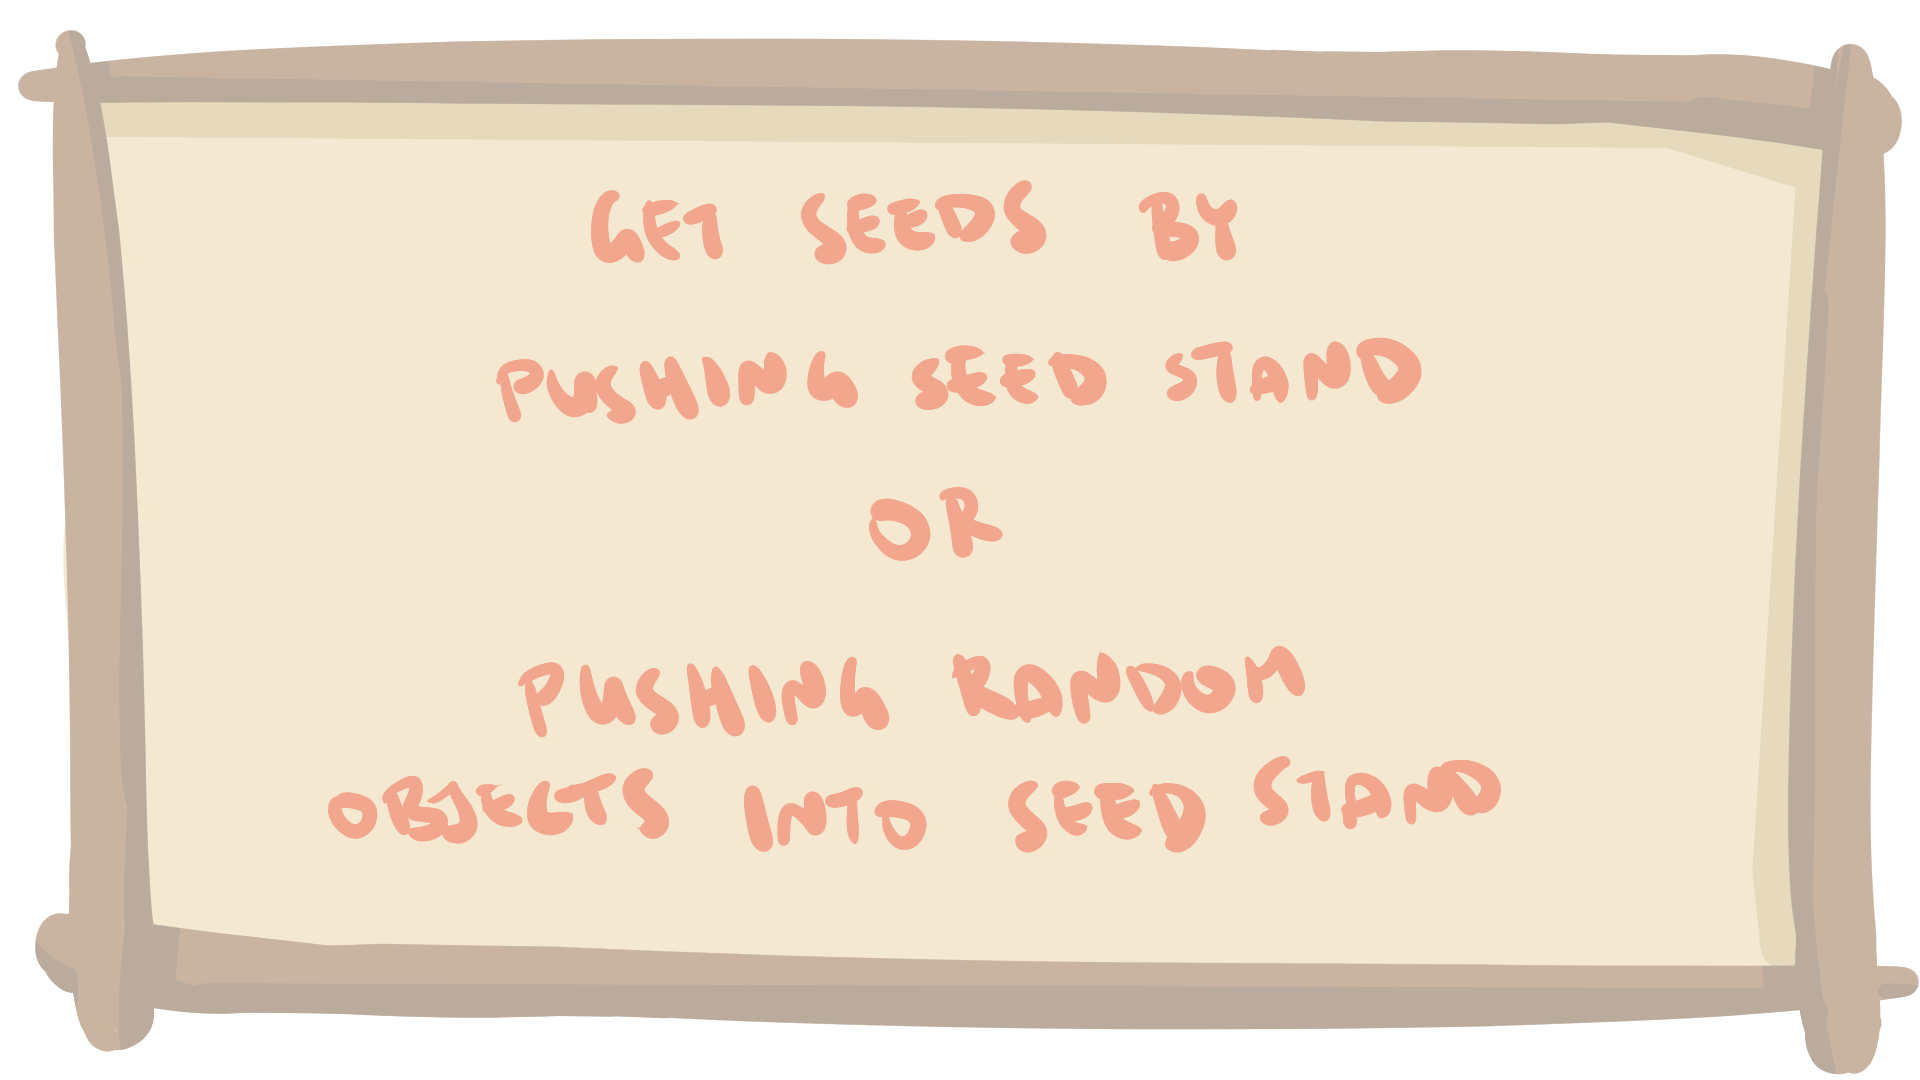 GET SEEDS BY
PUSHING SEED STAND
OR
PUSHING RANDOM
OBJECTS INTO SEED STAND